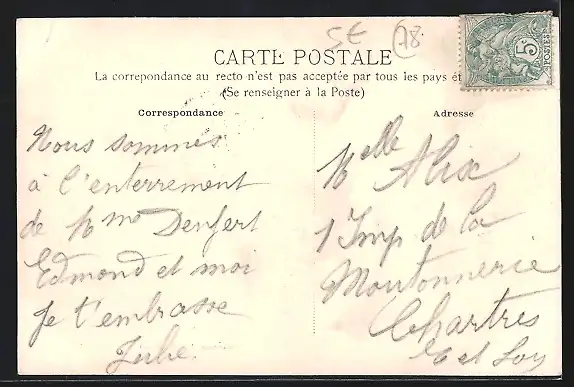 5€ (78
CARTE POSTALE
La correpondance au recto n'est pas acceptée par tous les pays ét
(Se renseigner à la Poste)
Correspondance
Adresse
5c
POSTES
Nous sommes
à l'enterrement
de Mme Denfert
Edmond et moi
Je t'embrasse
Melle Alix
1 Imp de la
Moutonnerie
Chartres
E et Loir